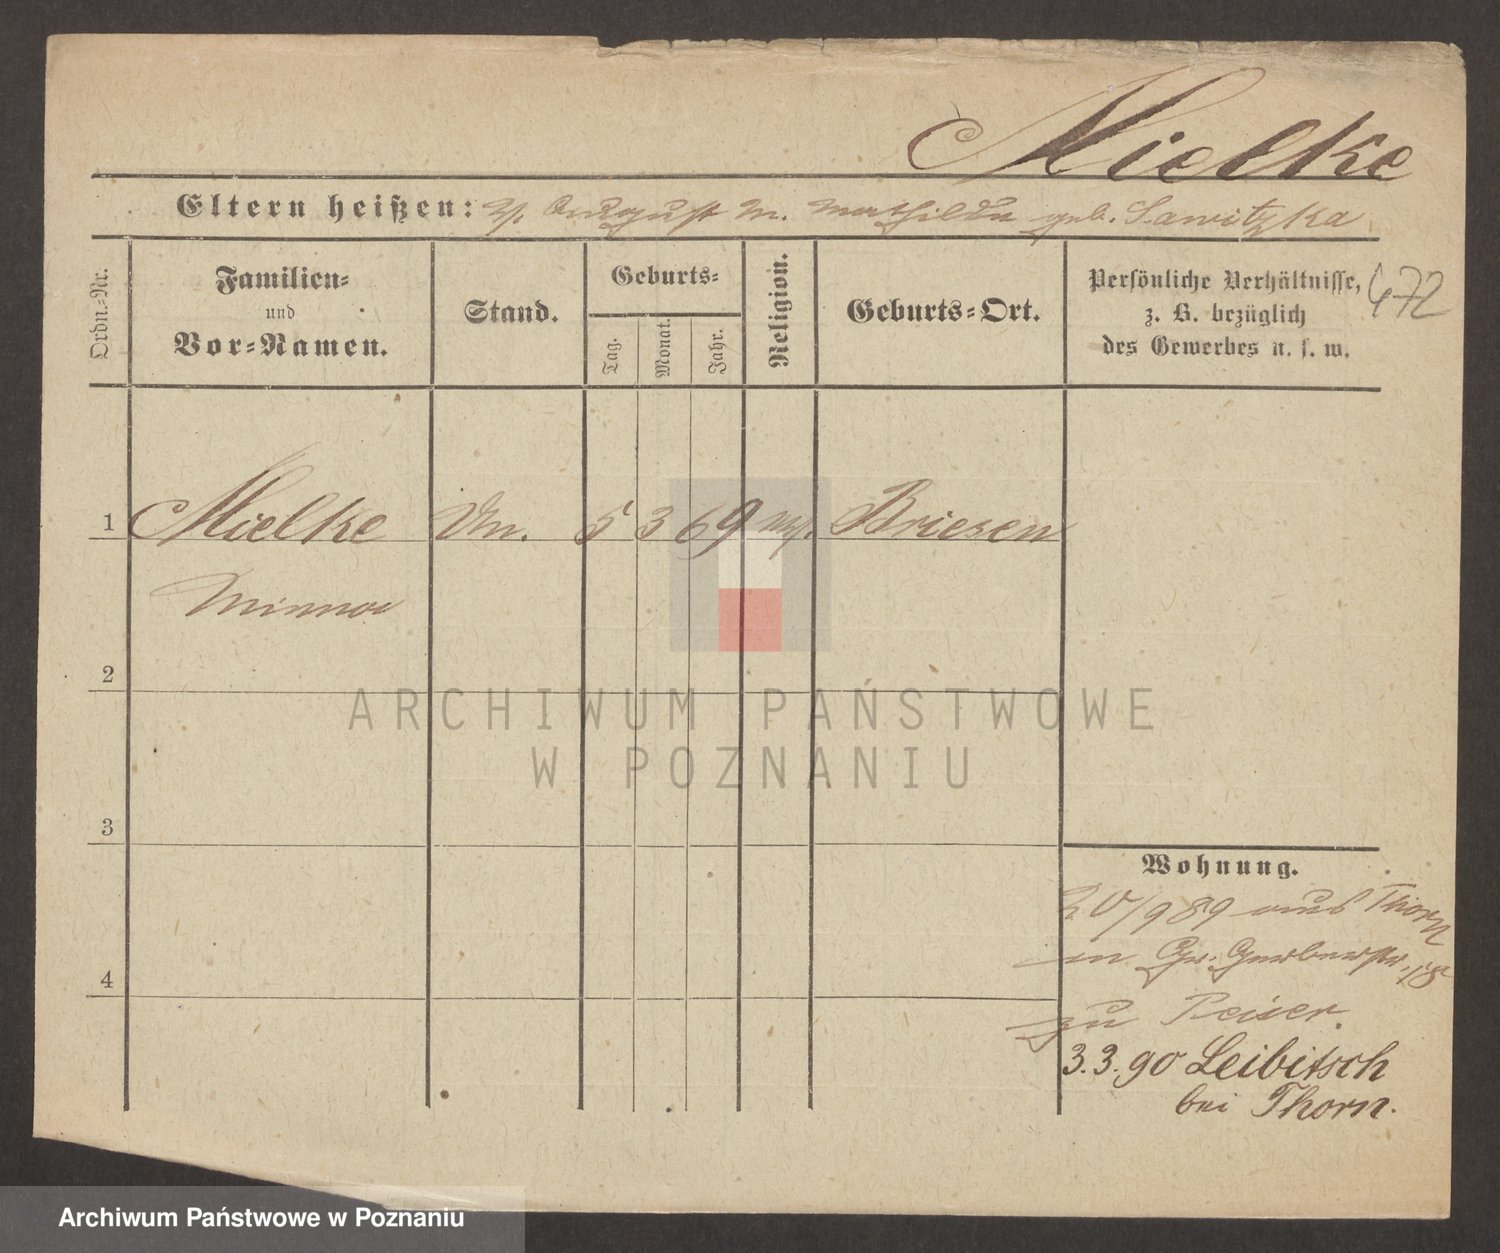 Mielke
Eltern heißen: V. August M. Mathilde geb. Sawitzka
Ordn.-Nr.
Familien-
und
Vor-Namen.
Stand.
Geburts-
Tag.
Monat.
Jahr.
Religion.
Geburts-Ort.
Persönliche Verhältnisse,
z. B. bezüglich
des Gewerbes u. s. w.
472
1 Mielke Un. 5 3 69 Briesen
Minna
2
3
4
Wohnung.
20/9 89 aus Thorn
in Gr. Gerberstr. 18
zu Reiser.
3.3.90 Leibitsch
bei Thorn.
ARCHIWUM PAŃSTWOWE
W POZNANIU
Archiwum Państwowe w Poznaniu